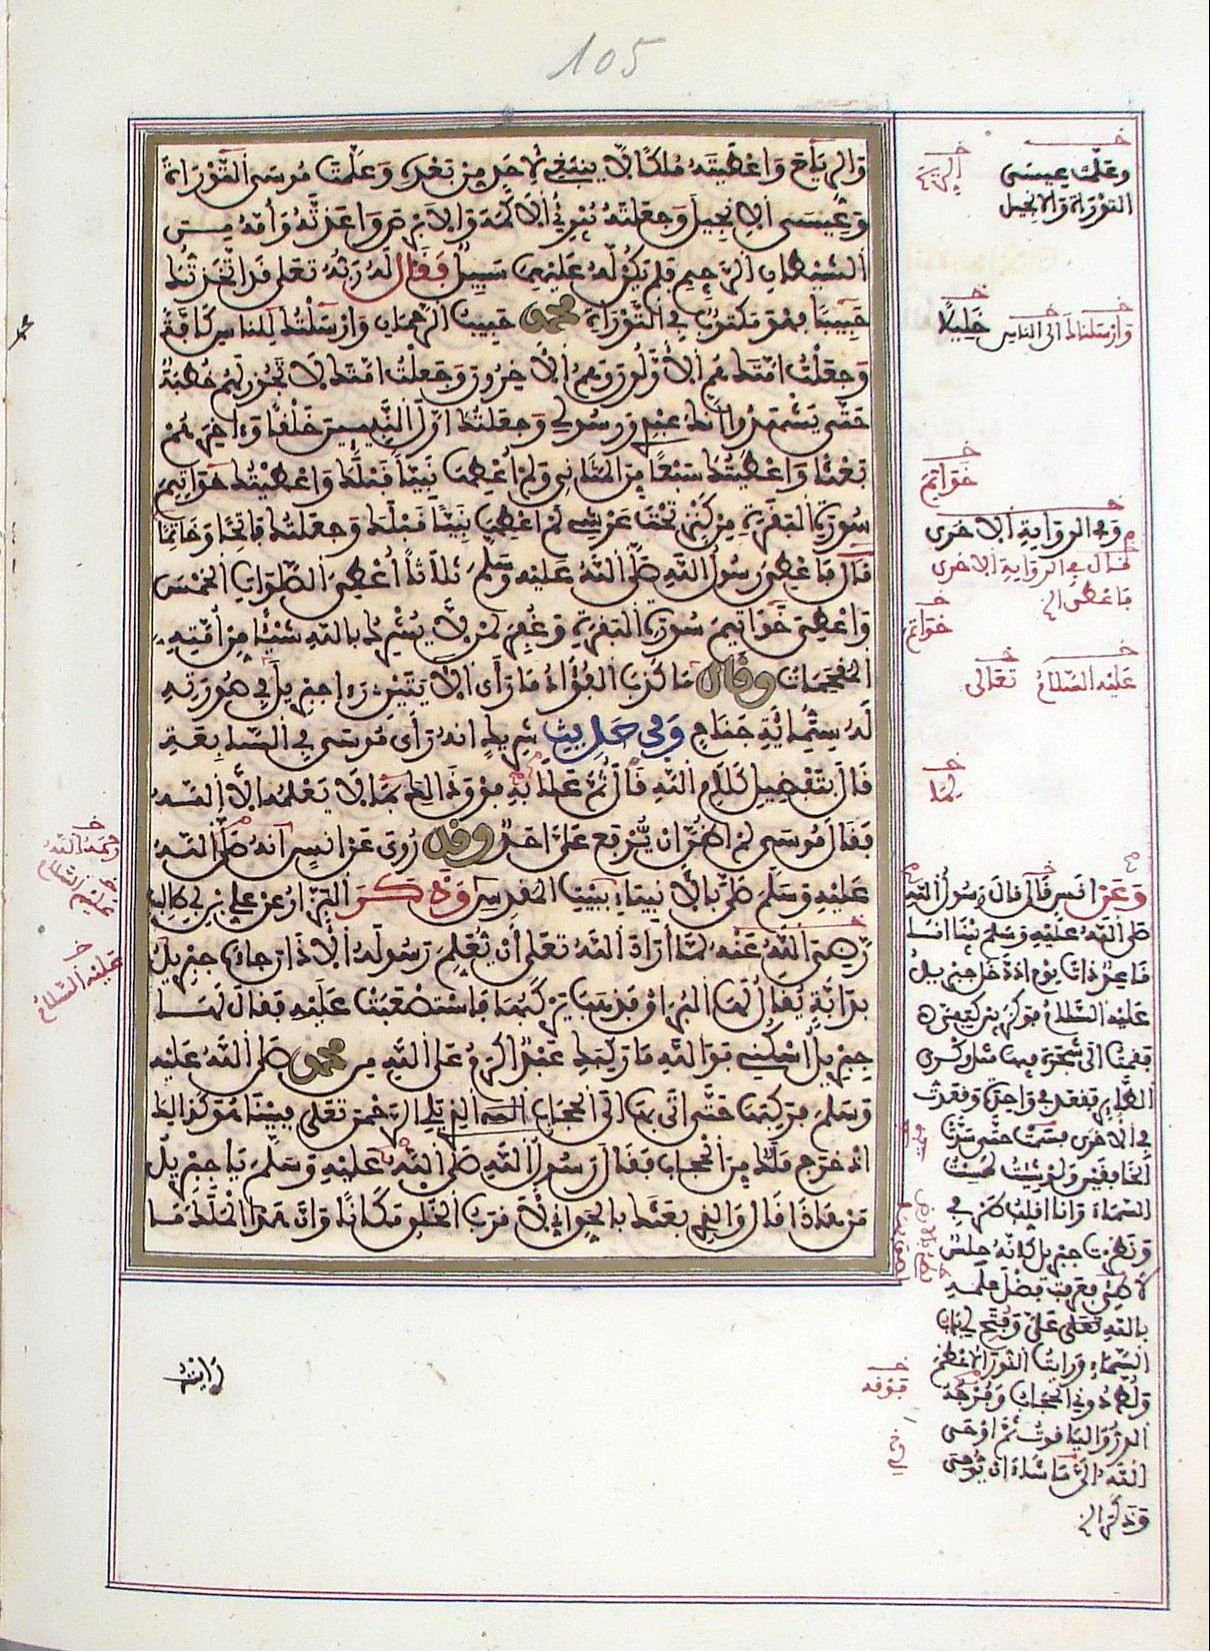 105
والرياح وأعطيته ملكا لا ينبغي لأحد من بعده وعلمت موسى التوراة
وعيسى الإنجيل وجعلته يبرئ الأكمه والأبرص وأعذته وأمه من
الشيطان الرجيم فلم يكن له عليهما سبيل فقال له ربه تعلى قد اتخذتك
حبيبا فهو مكتوب في التوراة محمد حبيب الرحمان وأرسلتك للناس كافة
وجعلت أمتك هم الأولون وهم الآخرون وجعلت أمتك لا تجوز لهم خطبة
حتى يشهدوا أنك عبدي ورسولي وجعلتك أول النبيين خلقا وءاخرهم
بعثا وأعطيتك سبعا من المثاني ولم أعطها نبيا قبلك وأعطيتك خواتيم
سورة البقرة من كنز تحت عرشي لم أعطها نبيا قبلك وجعلتك فاتحا وخاتما
قال فأعطي رسول الله صلى الله عليه وسلم ثلاثا أعطي الصلوات الخمس
وأعطي خواتيم سورة البقرة وغفر لمن لا يشرك بالله شيئا من أمته
المقحمات وقال ما كذب الفؤاد ما رأى الآيتين رءا جبريل في صورته
له ستمائة جناح وفي حديث شريك أنه رأى موسى في السابعة
قال بتفضيل كلام الله قال ثم علا به فوق ذالك بما لا يعلمه إلا الله
فقال موسى لم أظن أن يرفع علي أحد وقد روى عن أنس أنه صلى الله
عليه وسلم صلى بالأنبياء ببيت المقدس وذكر البزار عن علي بن أبي طالب
رضي الله عنه لما أراد الله تعلى أن يعلم رسوله الأذان جاءه جبريل
بدابة يقال لها البراق فذهب يركبها فاستصعبت عليه فقال لها
جبريل اسكني فوالله ما ركبك عبد أكرم على الله من محمد صلى الله عليه
وسلم فركبها حتى أتى بها إلى الحجاب الذي يلي الرحمن تعلى فبينا هو كذالك
إذ خرج ملك من الحجاب فقال رسول الله صلى الله عليه وسلم يا جبريل
من هاذا قال والذي بعثك بالحق إني لأقرب الخلق مكانا وإن هذا الملك ما
رأيته
وعلمت عيسى
التوراة والإنجيل
خليلا
وأرسلناك إلى الناس
خواتم
وفي الرواية الأخرى
قال في الرواية الأخرى
فأعطي الخ
خواتم
عليه السلام
تعالى
لما
وعن أنس قال قال رسول الله
صلى الله عليه وسلم بينا أنا
قاعد ذات يوم إذ دخل جبريل
عليه السلام فوكز بين كتفي
فقمت إلى شجرة فيها مثل وكري
الطائر فقعد في واحدة وقعدت
في الأخرى فنمت حتى سدت
الخافقين ولو شئت لمست
السماء وأنا أقلب طرفي
ونظرت جبريل كأنه حلس
لاطئ فعرفت فضل علمه
بالله تعلى علي وفتح لي باب
السماء ورأيت النور الأعظم
ولط دوني الحجاب وفرجه
الدر والياقوت ثم أوحى
الله إلي ما شاء أن يوحي
وذكر الخ
فوقه
رحمه الله
عليهم السلام
عليه السلام